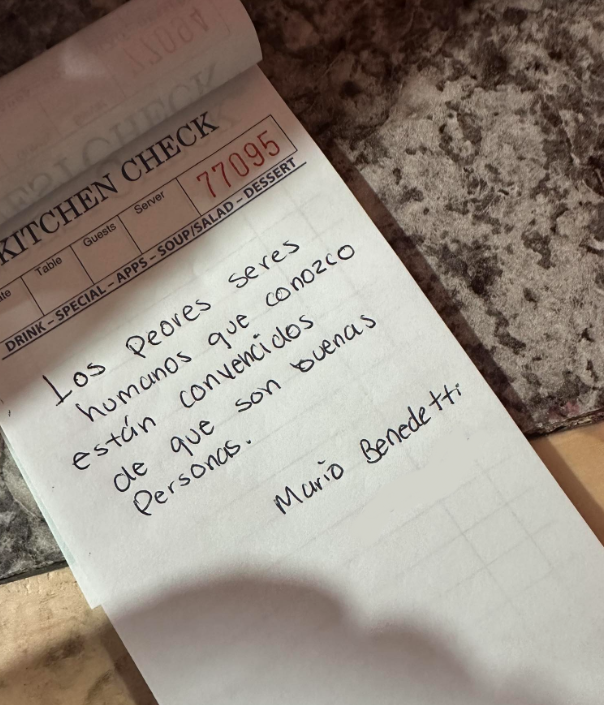 KITCHEN CHECK
Table
Guests
Server
77095
DRINK - SPECIAL - APPS - SOUP/SALAD - DESSERT
Los peores seres
humanos que conozco
están convencidos
de que son buenas
Personas.
Mario Benedetti